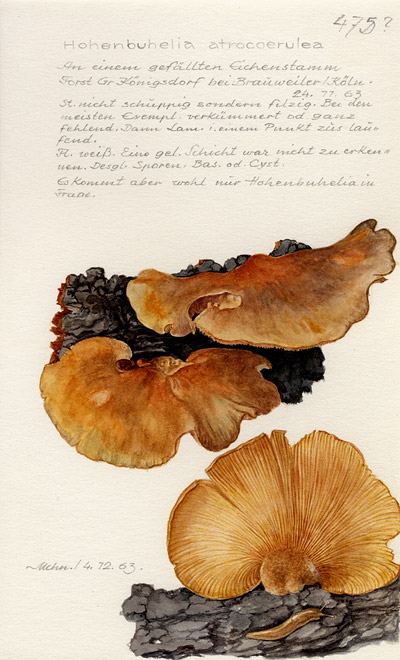 475?
Hohenbuhelia atrocoerulea
An einem gefällten Eichenstamm
Forst Gr. Königsdorf bei Brauweiler/Köln.
24. 11. 63
St. nicht schuppig sondern filzig. Bei den
meisten Exempl. verkümmert od ganz
fehlend. Dann Lam. i. einem Punkt zus lau=
fend.
Fl. weiß. Eine gel. Schicht war nicht zu erken=
nen. Desgl. Sporen. Bas. od. Cyst.
Es kommt aber wohl nur Hohenbuhelia in
Frage.
4. 12. 63.